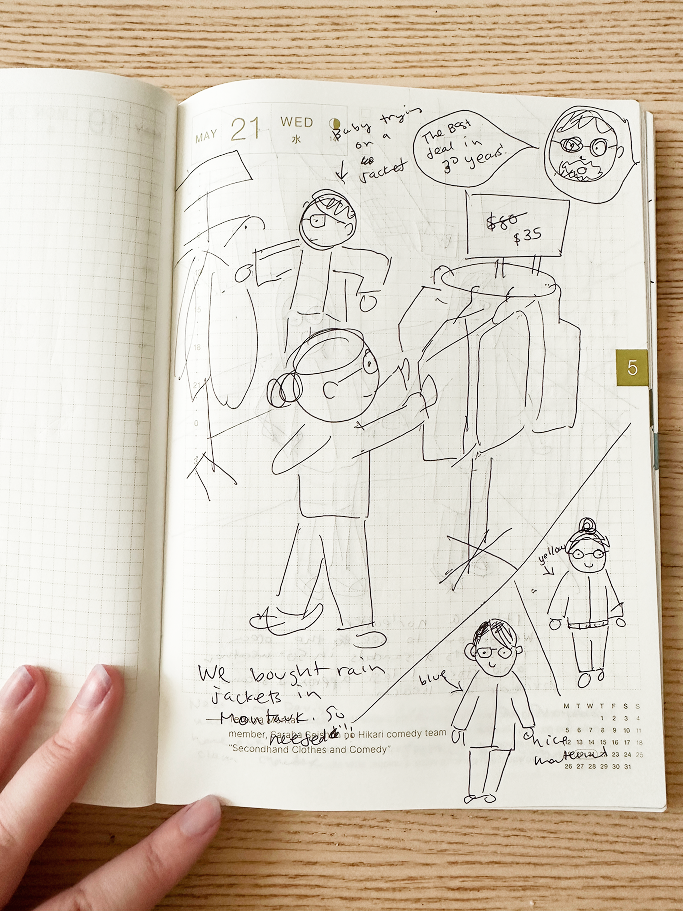 MAY 21 WED
水
Baby trying
on a
jacket
The Best
deal in
30 years!
$80
$35
5
yellow
blue
nice
material
We bought rain
jackets in
Montauk. So
needed!!
member, Saraba Seishun no Hikari comedy team
"Secondhand Clothes and Comedy"
M T W T F S S
1 2 3 4
5 6 7 8 9 10 11
12 13 14 15 16 17 18
19 20 21 22 23 24 25
26 27 28 29 30 31